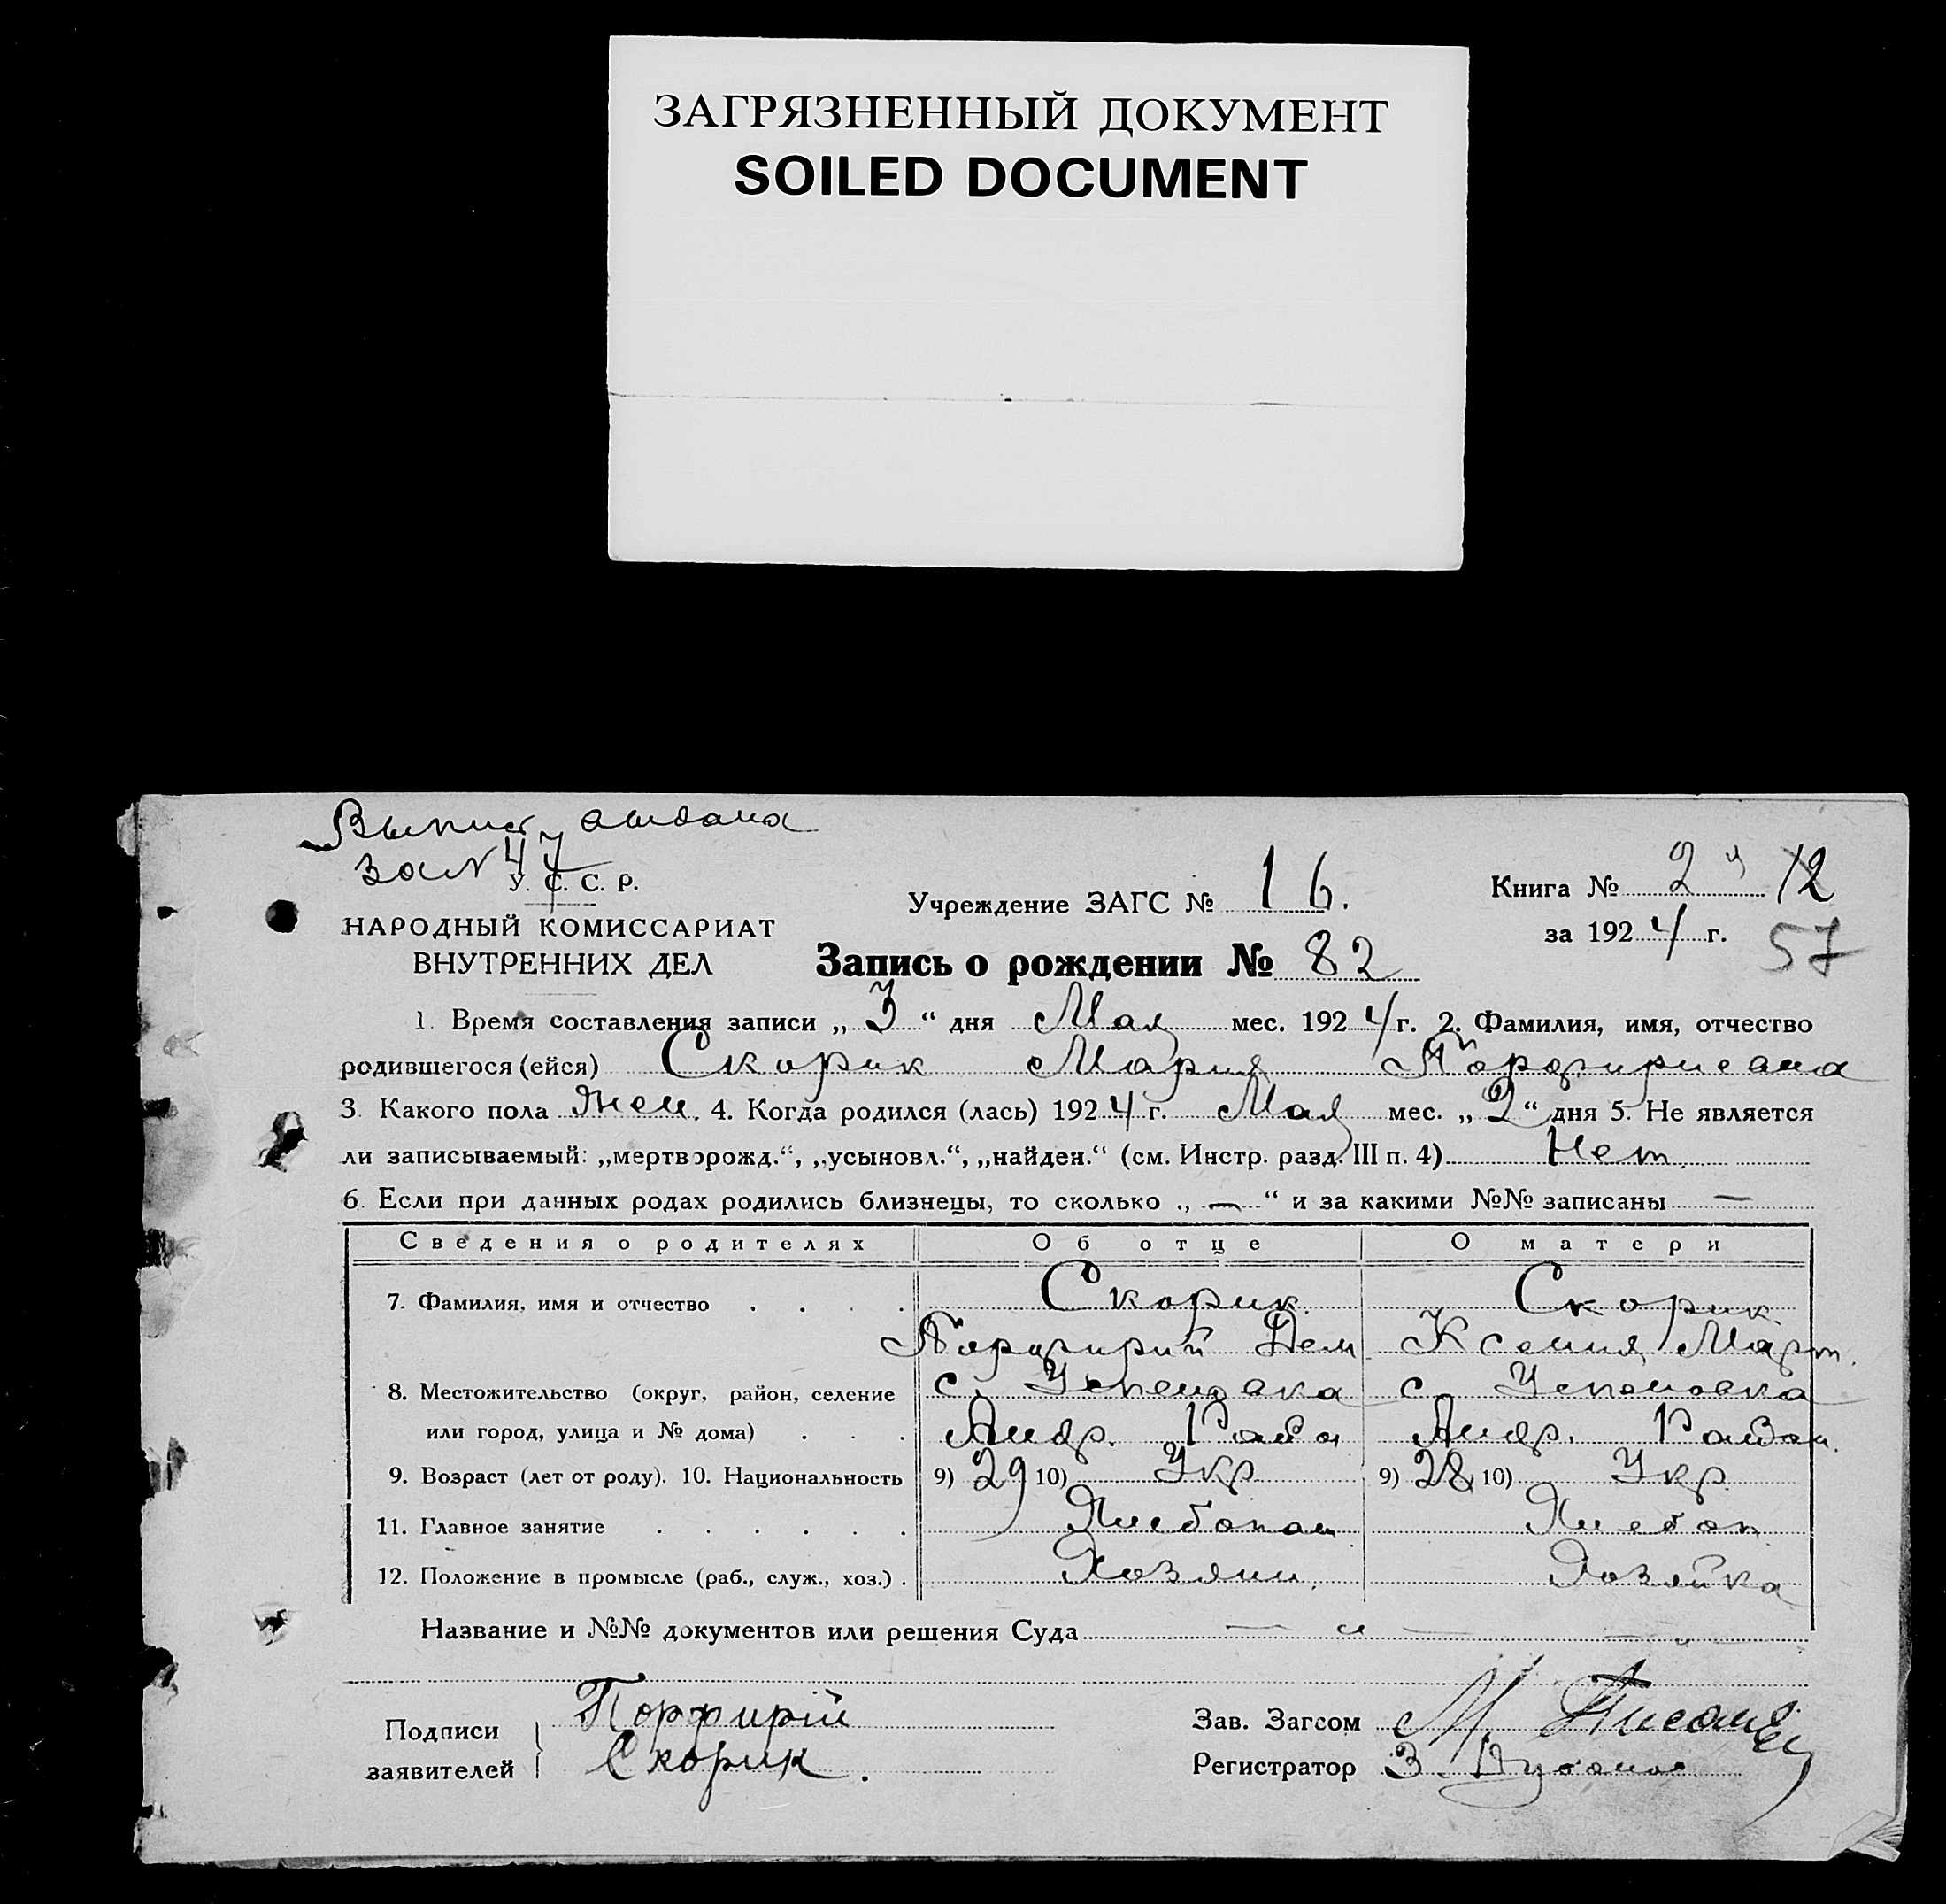 ЗАГРЯЗНЕННЫЙ ДОКУМЕНТ
SOILED DOCUMENT
Выпись выдана
за N 47
У. С. С. Р.
НАРОДНЫЙ КОМИССАРИАТ
ВНУТРЕННИХ ДЕЛ
Учреждение ЗАГС № 16.
Книга № 2 12
за 1924 г. 57
Запись о рождении № 82
1. Время составления записи „3“ дня Мая мес. 1924 г. 2. Фамилия, имя, отчество
родившегося (ейся) Скорик Мария Порфириевна
3. Какого пола Жен. 4. Когда родился (лась) 1924 г. Мая мес. „2“ дня 5. Не является
ли записываемый: „мертворожд.“, „усыновл.“, „найден.“ (см. Инстр. разд. III п. 4) Нет.
6. Если при данных родах родились близнецы, то сколько „—“ и за какими №№ записаны —
Сведения о родителях Об отце О матери
7. Фамилия, имя и отчество . . . . Скорик Скорик
Порфирий Дем Ксения Март.
8. Местожительство (округ, район, селение с. Успеновка с. Успеновка
или город, улица и № дома) . . . Андр. Район Андр. Район.
9. Возраст (лет от роду). 10. Национальность 9) 29 10) Укр 9) 28 10) Укр
11. Главное занятие . . . . . . Хлебопаш Хлебоп
12. Положение в промысле (раб., служ., хоз.) . Хозяин. Хозяйка
Название и №№ документов или решения Суда — „ — — „ —
Подписи заявителей
Порфирій
Скорик.
Зав. Загсом М.
Регистратор З.